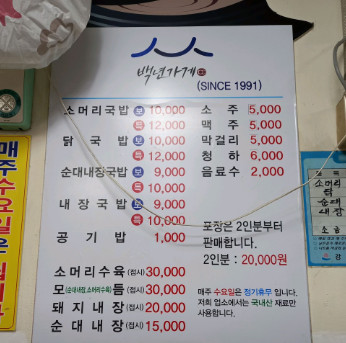 백년가게
(SINCE 1991)
소머리국밥 보 10,000
특 12,000
닭국밥 보 10,000
특 12,000
순대내장국밥 보 9,000
특 10,000
내장국밥 보 9,000
특 10,000
공기밥 1,000
소머리수육 (접시) 30,000
모(순대,내장,소머리수육)듬 (접시) 30,000
돼지내장 (접시) 20,000
순대내장 (접시) 15,000
소주 5,000
맥주 5,000
막걸리 5,000
청하 6,000
음료수 2,000
포장은 2인분부터
판매합니다.
2인분 : 20,000원
매주 수요일은 정기휴무 입니다.
저희 업소에서는 국내산 재료만
사용합니다.
매주수요일은
소머리
닭
순대
내장
소금